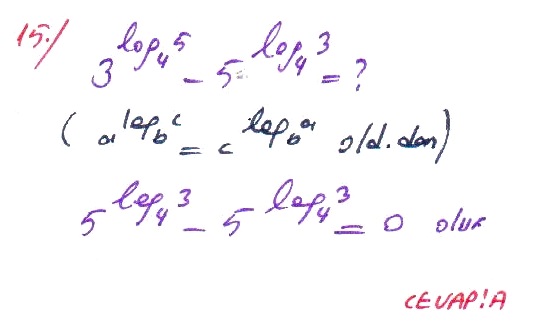 15./ 3^log₄5 - 5^log₄3 = ?
( a^log_b c = c^log_b a old.dan)
5^log₄3 - 5^log₄3 = 0 olur
CEVAP!A